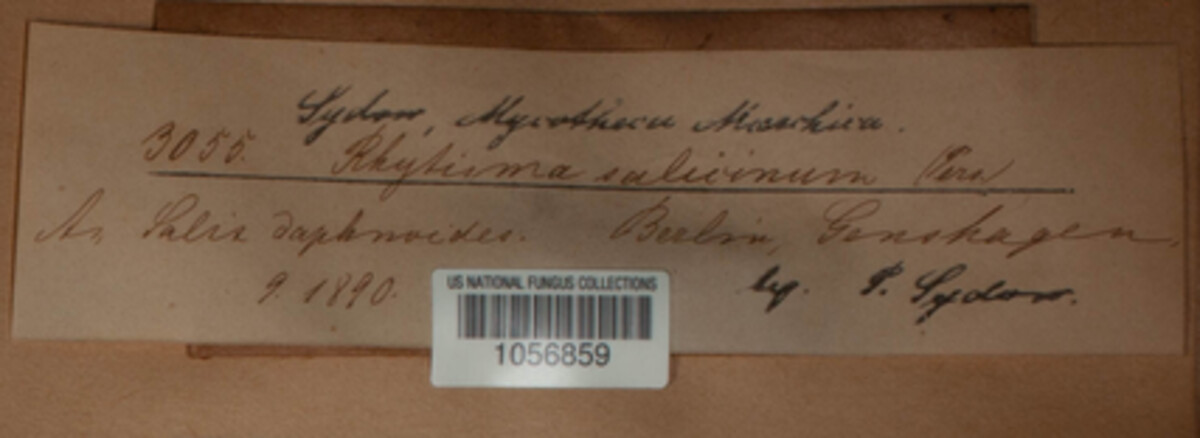 Sydow, Mycotheca Marchica.
3055. Rhytisma salicinum (Pers
An Salix daphnoides. Berlin, Genshagen.
9. 1890. leg. P. Sydow.
US NATIONAL FUNGUS COLLECTIONS
1056859